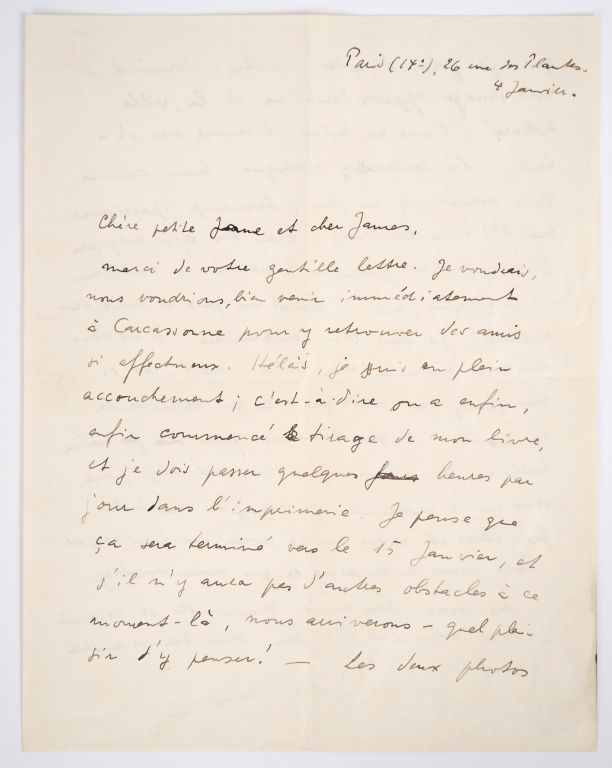 Paris (14e), 26 rue des Plantes.
4 Janvier.
Chère petite et cher James,
merci de votre gentille lettre. Je voudrais,
nous voudrions, bien venir immédiatement
à Carcassonne pour y retrouver des amis
si affectueux. Hélàs, je suis en plein
accouchement ; c'est-à-dire on a enfin,
enfin commencé le tirage de mon livre,
et je dois passer quelques heures par
jour dans l'imprimerie. Je pense que
ça sera terminé vers le 15 Janvier, et
s'il n'y aura pas d'autres obstacles à ce
moment-là, nous arriverons - quel plai-
sir d'y penser! — Les deux photos